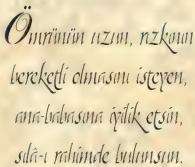 Ömrünün uzun, rızkının
bereketli olmasını isteyen,
ana-babasına iyilik etsin,
sıla-ı rahimde bulunsun.